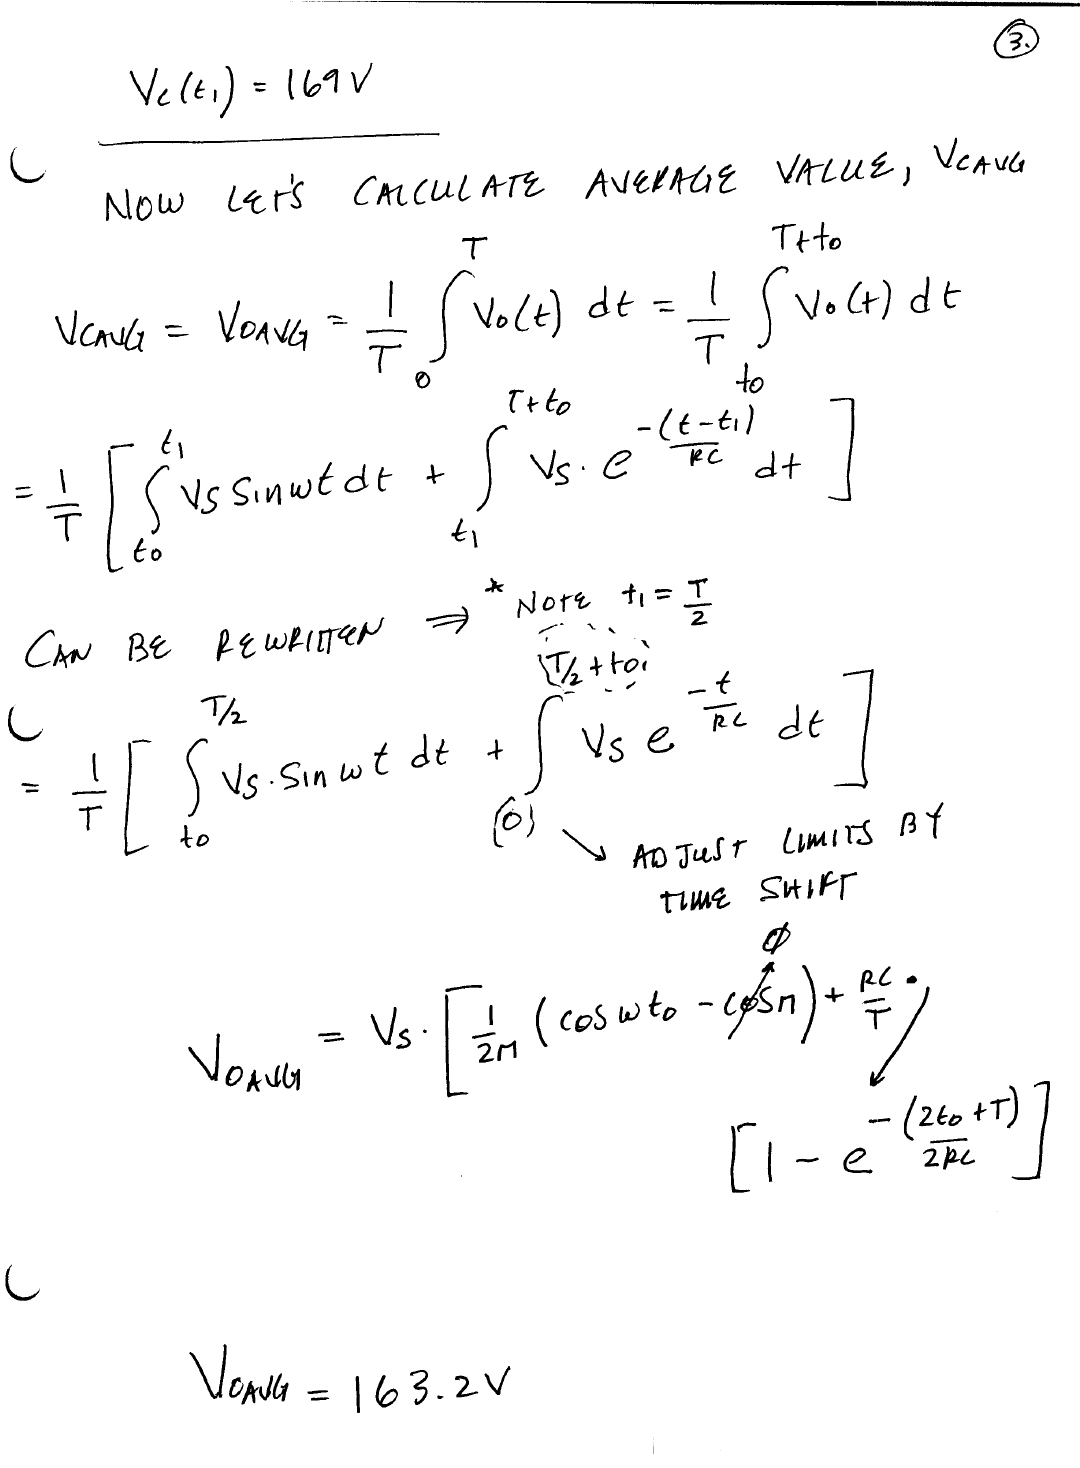 3.
Vc(t₁) = 169V
NOW LET'S CALCULATE AVERAGE VALUE, VCAVG
VCAVG = VOAVG = 1/T ∫₀^T Vo(t) dt = 1/T ∫_to^(T+to) Vo(t) dt
= 1/T [ ∫_to^t₁ VS Sinωt dt + ∫_t₁^(T+to) VS · e^(-(t-t₁)/RC) dt ]
CAN BE REWRITTEN ⇒ * NOTE t₁ = T/2
= 1/T [ ∫_to^(T/2) VS · Sin ωt dt + ∫_(0)^(T/2 + to) VS e^(-t/RC) dt ]
ADJUST LIMITS BY
TIME SHIFT
φ
VOAVG = VS · [ 1/2π (cos ωto - cosπ) + RC/T ·
[1 - e^(-(2to+T)/2RC) ]
VOAVG = 163.2V